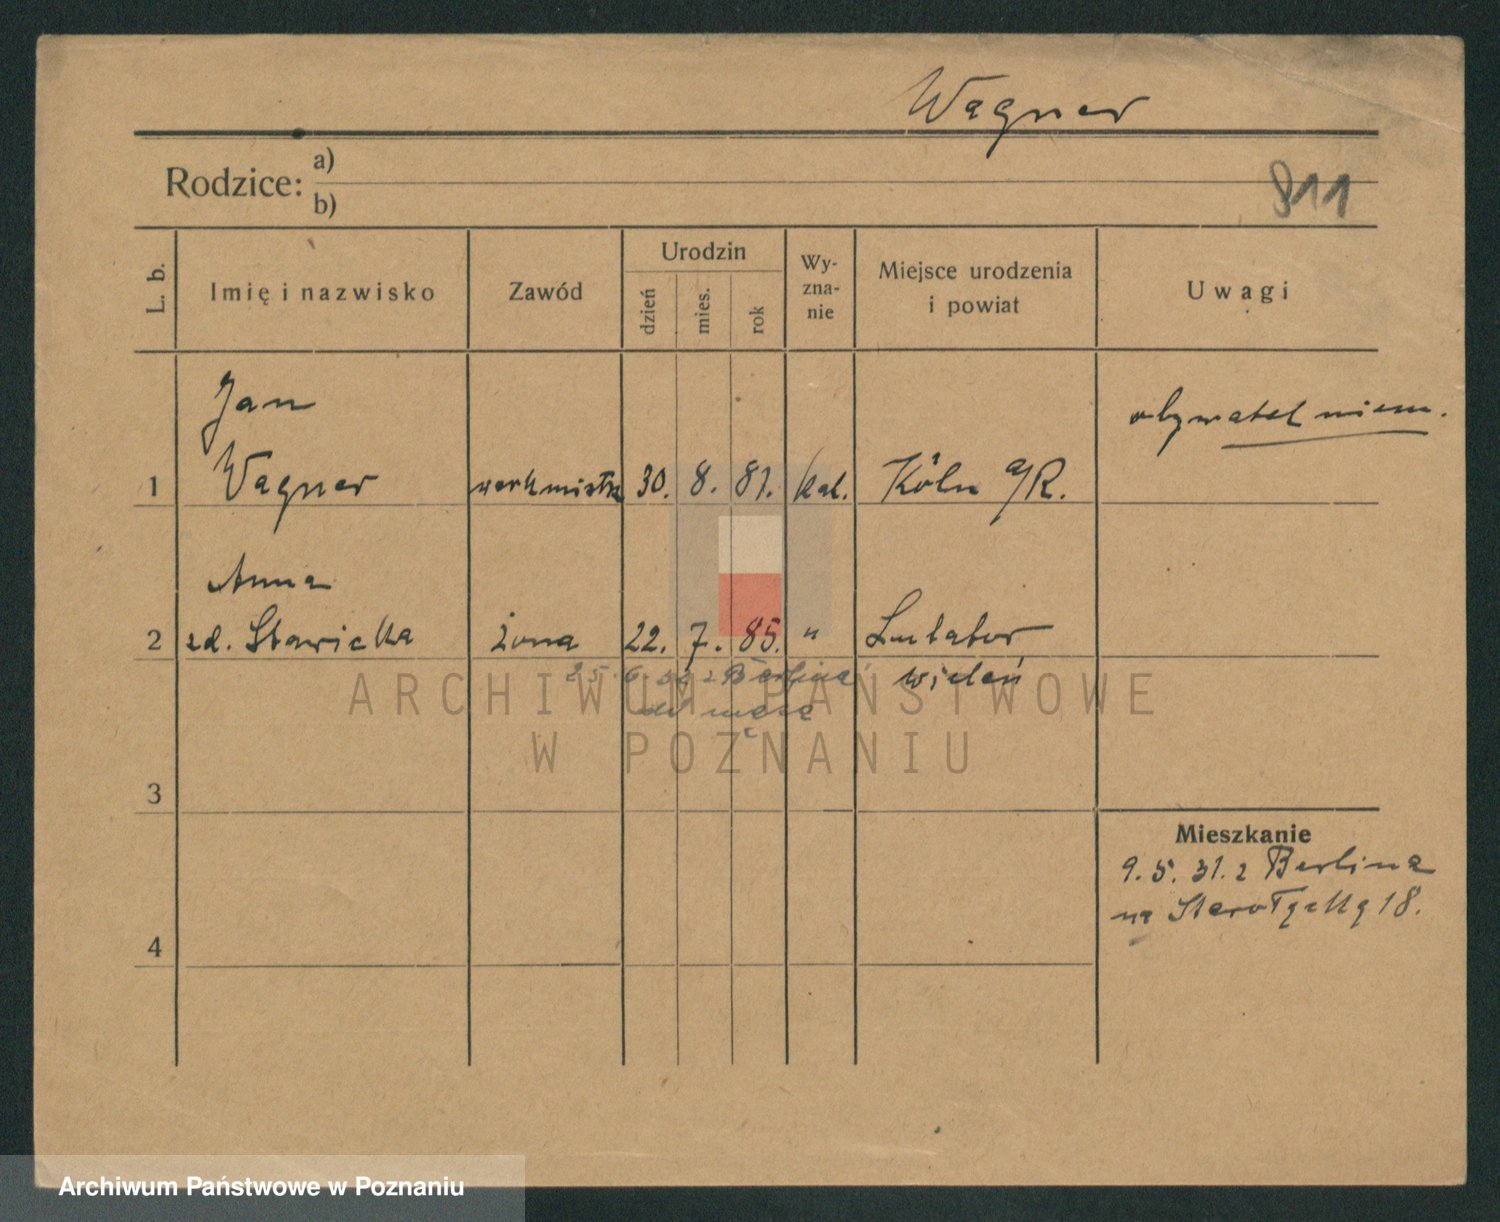 Wagner
Rodzice: a)
b)
811
L. b.
Imię i nazwisko
Zawód
Urodzin
dzień
mies.
rok
Wy-
zna-
nie
Miejsce urodzenia
i powiat
Uwagi
Jan
obywatel niem.
1 Wagner werkmistrz 30. 8. 81. kat. Köln a/R.
Anna
2 zd. Stawicka żona 22. 7. 85. "
25. 6. z Berlina wieleń
do męża
ARCHIWUM PAŃSTWOWE
W POZNANIU
3
Mieszkanie
9. 5. 31. z Berlina
na Starołęcką 18.
4
Archiwum Państwowe w Poznaniu